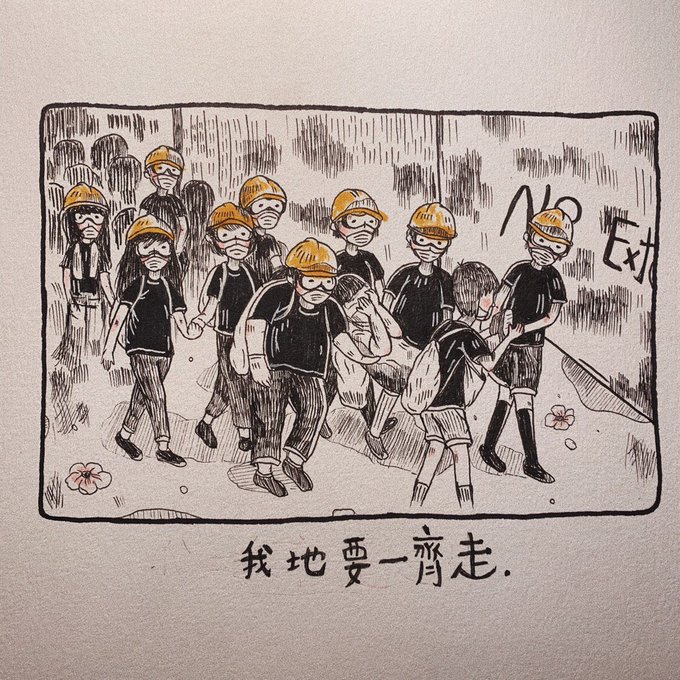 No
Ext
我地要一齊走.